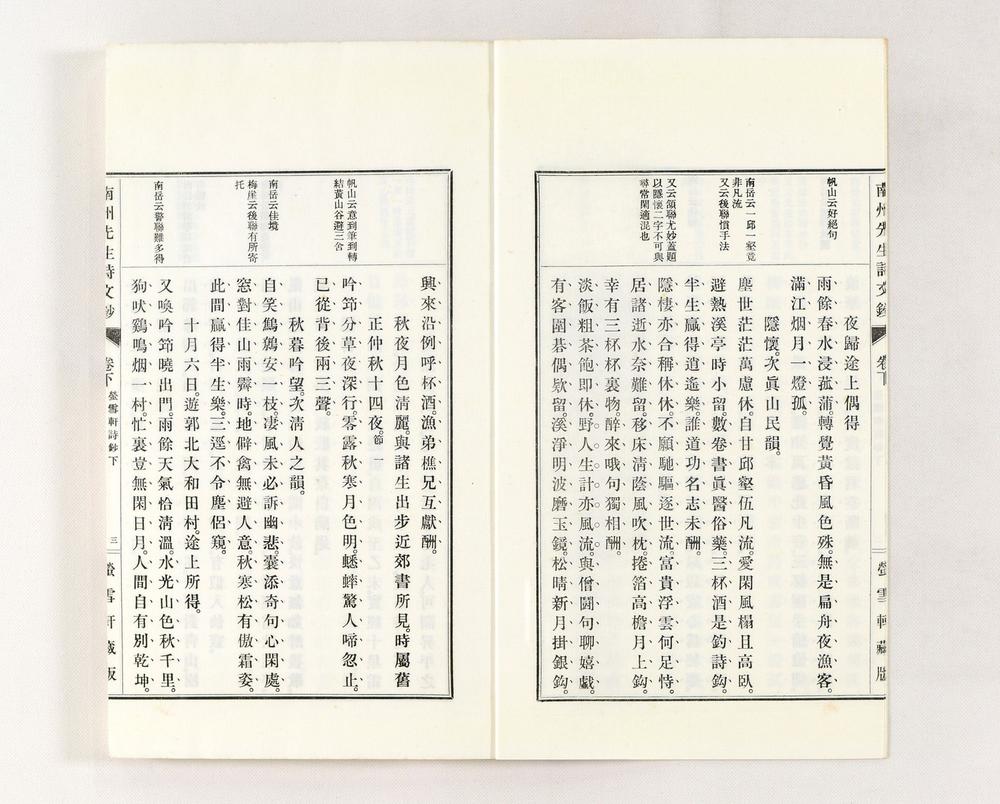 南州先生詩文鈔
卷下
螢雪軒藏版
帆山云好絕句
南岳云一邱一壑竟
非凡流
又云後聯慣手法
又云頷聯尤妙蓋題
以隱懷二字不可與
尋常閑適混也
夜歸途上偶得
雨餘春水浸菰蒲。轉覺黃昏風色殊。無是扁舟夜漁客。
滿江烟月一燈孤。
隱懷。次眞山民韻。
塵世茫茫萬慮休。自甘邱壑伍凡流。愛閑風榻且高臥。
避熱溪亭時小留。數卷書眞醫俗藥。三杯酒是釣詩鈎。
半生贏得逍遙樂。誰道功名志未酬。
隱棲亦合稱休休。不願馳驅逐世流。富貴浮雲何足恃。
居諸逝水奈難留。移床淸蔭風吹枕。捲箔高檐月上鈎。
幸有三杯杯裏物。醉來哦句獨相酬。
淡飯粗茶飽卽休。野人生計亦風流。與僧鬪句聊嬉戲。
有客圍碁偶欵留。溪淨明波磨玉鏡。松晴新月掛銀鈎。
帆山云意到筆到轉
結黃山谷避三舍
南岳云佳境
梅崖云後聯有所寄
托
南岳云警聯難多得
興來沿例呼杯酒。漁弟樵兄互獻酬。
秋夜月色淸麗。與諸生出步近郊書所見。時屬舊
正仲秋十四夜。節一
吟筇分草夜深行。零露秋寒月色明。蟋蟀驚人啼忽止。
已從背後兩三聲。
秋暮吟望。次淸人之韻。
自笑鷦鷯安一枝。凄風未必訴幽悲。囊添奇句心閑處。
窓對佳山雨霽時。地僻禽無避人意。秋寒松有傲霜姿。
此間贏得半生樂。三逕不令塵侶窺。
十月六日。遊郭北大和田村。途上所得。
又喚吟筇曉出門。雨餘天氣恰淸溫。水光山色秋千里。
狗吠鷄鳴烟一村。忙裏豈無閑日月。人間自有別乾坤。
南州先生詩文鈔
卷下
螢雪軒詩鈔下
三
螢雪軒藏版